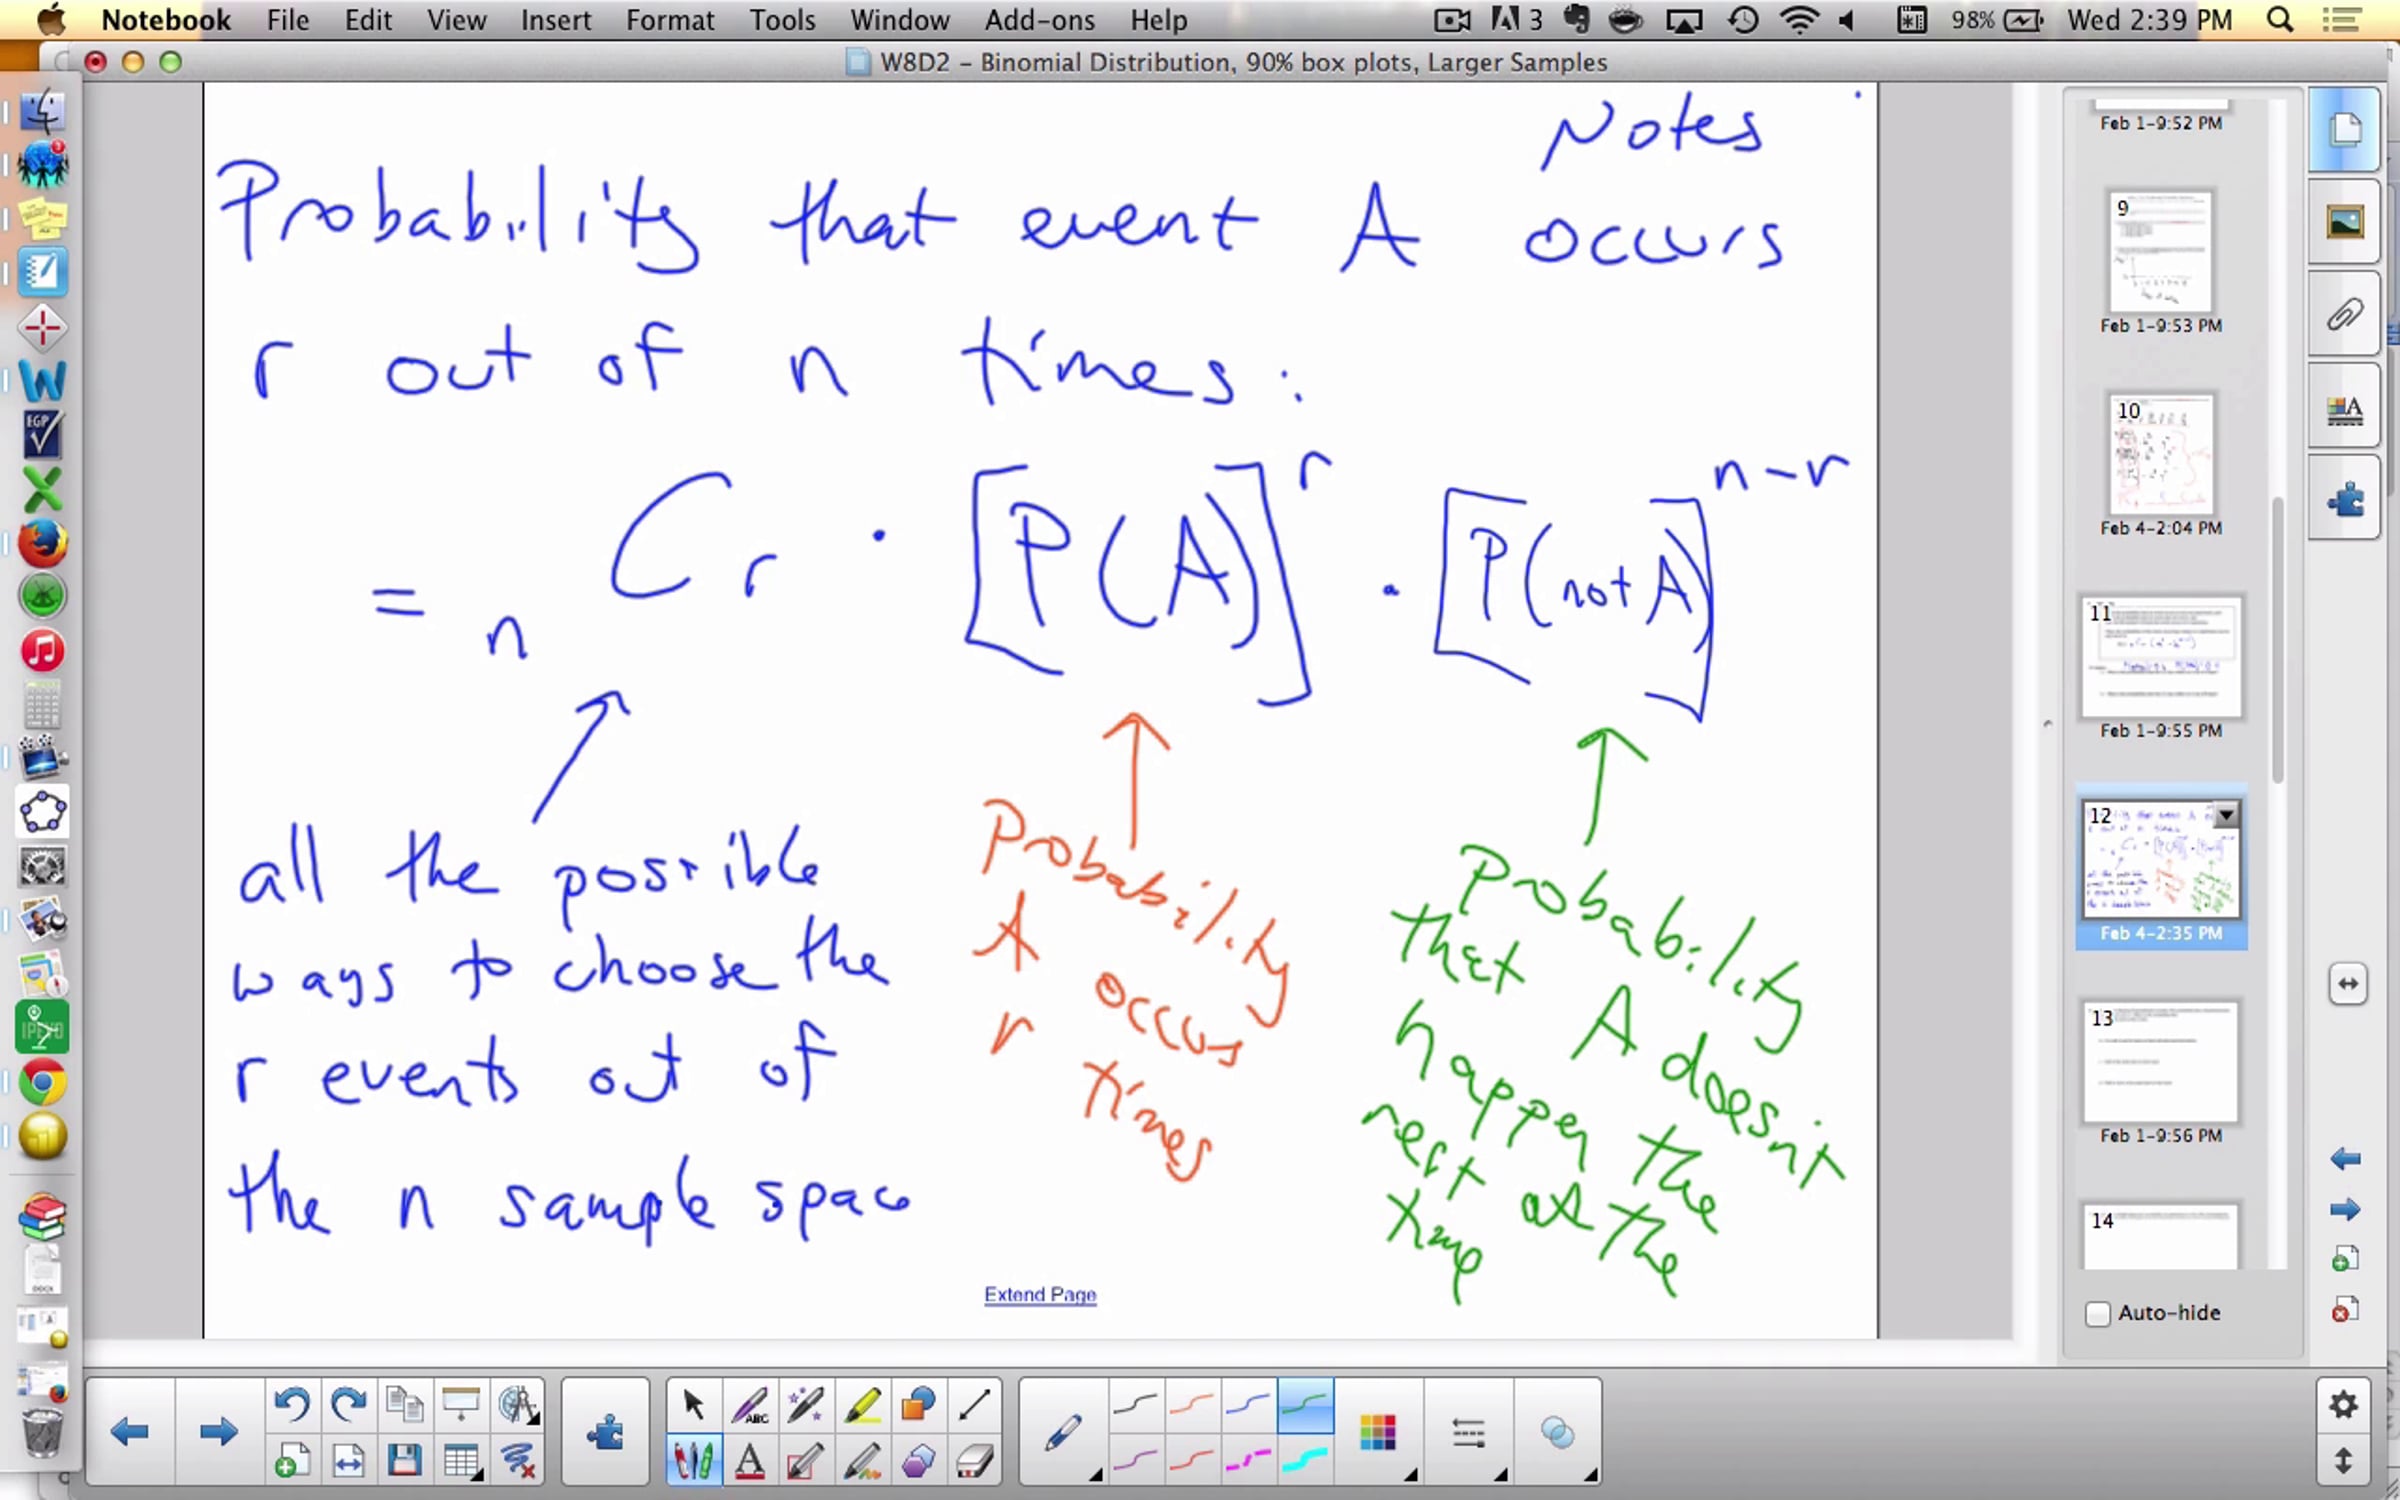 Notebook File Edit View Insert Format Tools Window Add-ons Help 3 98% Wed 2:39 PM
W8D2 – Binomial Distribution, 90% box plots, Larger Samples
Notes
Probability that event A occurs
r out of n times:
= nCr · [P(A)]^r · [P(not A)]^n-r
all the possible
ways to choose the
r events out of
the n sample space
Probability
A occurs
r times
Probability
that A doesnt
happen the
rest of the
time
Extend Page
Feb 1-9:52 PM
9
Feb 1-9:53 PM
10
Feb 4-2:04 PM
11
Feb 1-9:55 PM
12
Feb 4-2:35 PM
13
Feb 1-9:56 PM
14
Auto-hide
EGP
W
DOCX
ABC
A